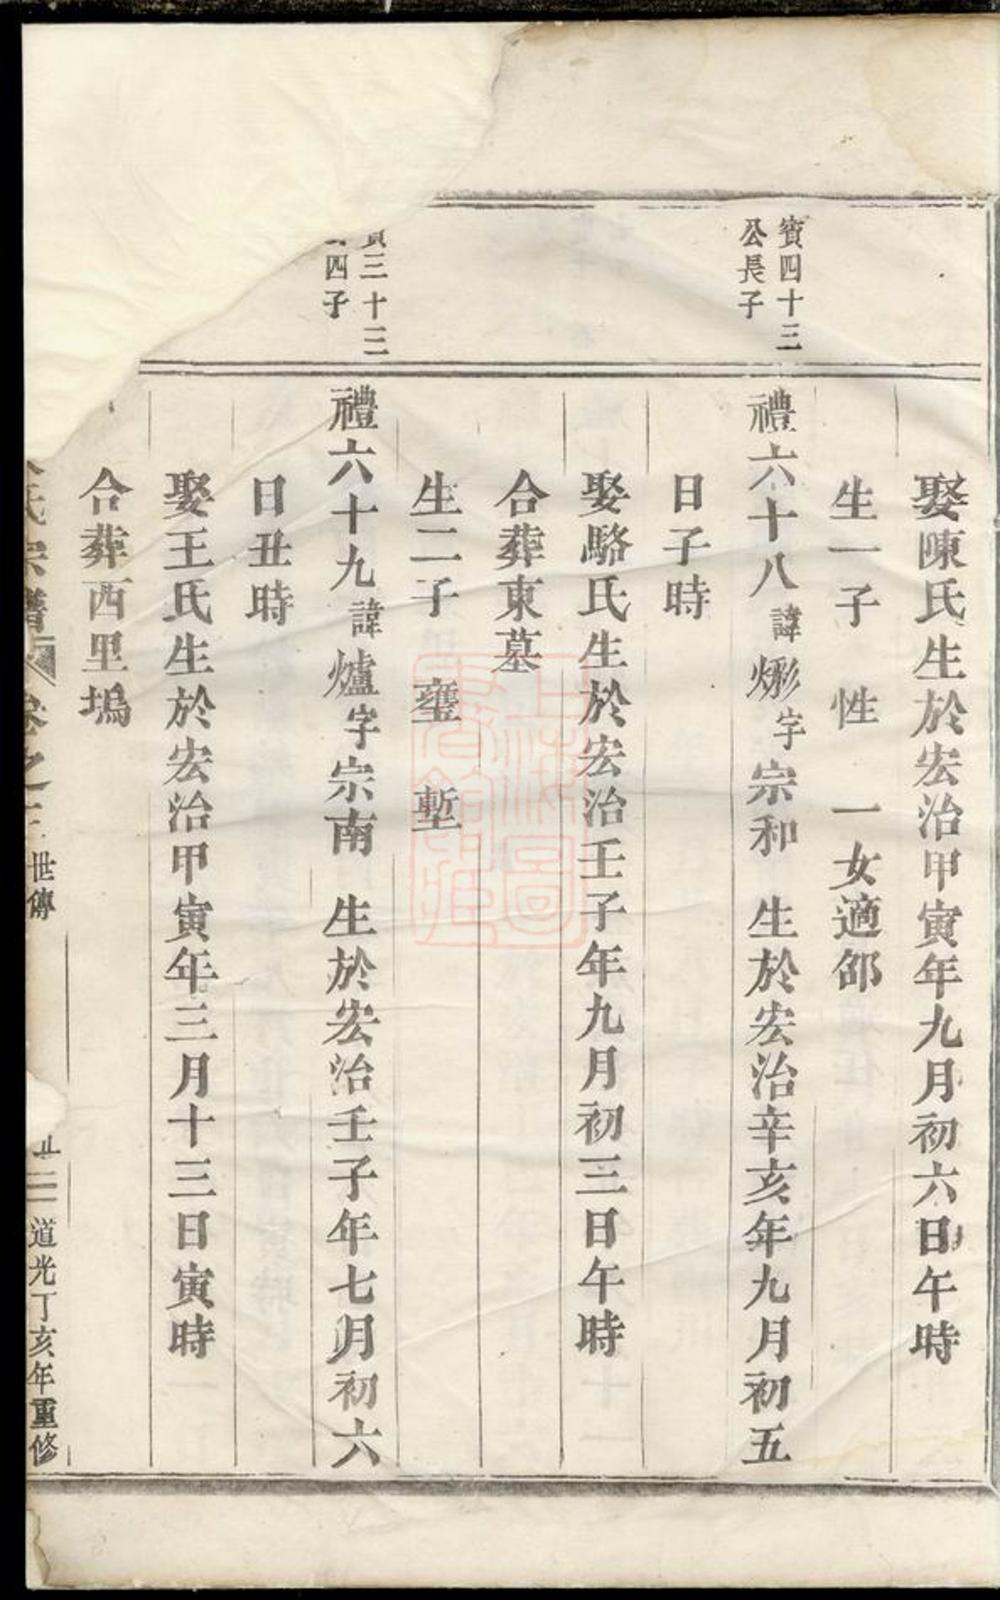 娶陳氏生於宏治甲寅年九月初六日午時
生一子 性 一女適邰
賓四十三
公長子
禮六十八諱燦字宗和 生於宏治辛亥年九月初五
日子時
娶駱氏生於宏治壬子年九月初三日午時
合葬東墓
生二子 壅 塹
三十三
四子
禮六十九諱爐字宗南 生於宏治壬子年七月初六
日丑時
娶王氏生於宏治甲寅年三月十三日寅時
合葬西里塢
氏宗譜 卷之 世傳 道光丁亥年重修
上海圖書館藏